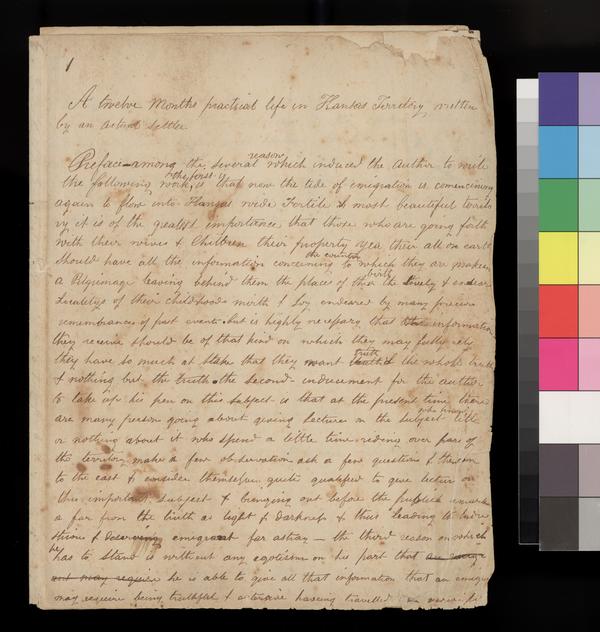 1
A twelve Months practical life in Kansas Territory written
by an actual settler
Preface – among the several reasons which induced the author to write
the following work, the first is that now the tide of emigration is comencing
again to flow into Kansas wide Fertile & most beautiful territo
ry it is of the greatest importance that those who are going forth
with their wives & Children their property yea their all on earth
should have all the information concerning the country to which they are making
a Pilgrimage leaving behind them the places of their birth the lovely & endear
Localitys of their childhoods mirth & Joy endeared by many precious
remembrances of past events. but is highly necessary that the information
they receive should be of that kind on which they may fully rely
they have so much at Stake that they want truth the whole truth
& nothing but the truth. the second inducement for the author
to take up his pen on this subject is that at the present time there
are many person going about giving lectures on the subject who know little
or nothing about it who spend a little time rideing over part of
the territory make a few observation ask a few questions & then
to the east & consider themselves quite qualified to give lecture on
this important subject & bringing out before the publick
as far from the truth as light & darkness & thus leading
& deserving emigrant far astray – the third reason on which
he has to stand is without any egotism on his part that
and may require he is able to give all that information that an emigra
may require being truthful & haveing travelled